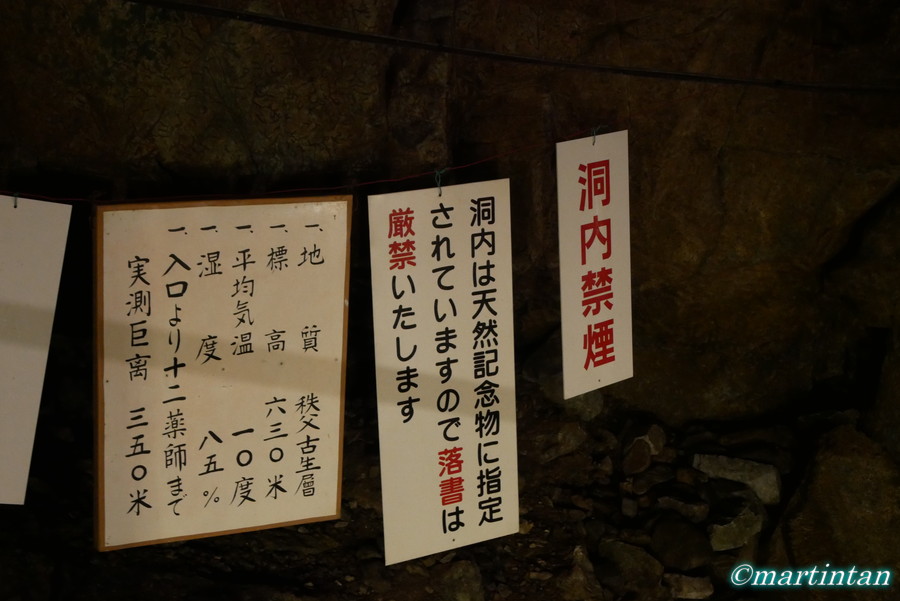 洞内禁煙
洞内は天然記念物に指定
されていますので落書は
厳禁いたします
一、地質 秩父古生層
一、標高 六三〇米
一、平均気温 一〇度
一、湿度 八五%
一、入口より十二薬師まで
実測巨離 三五〇米
©martintan